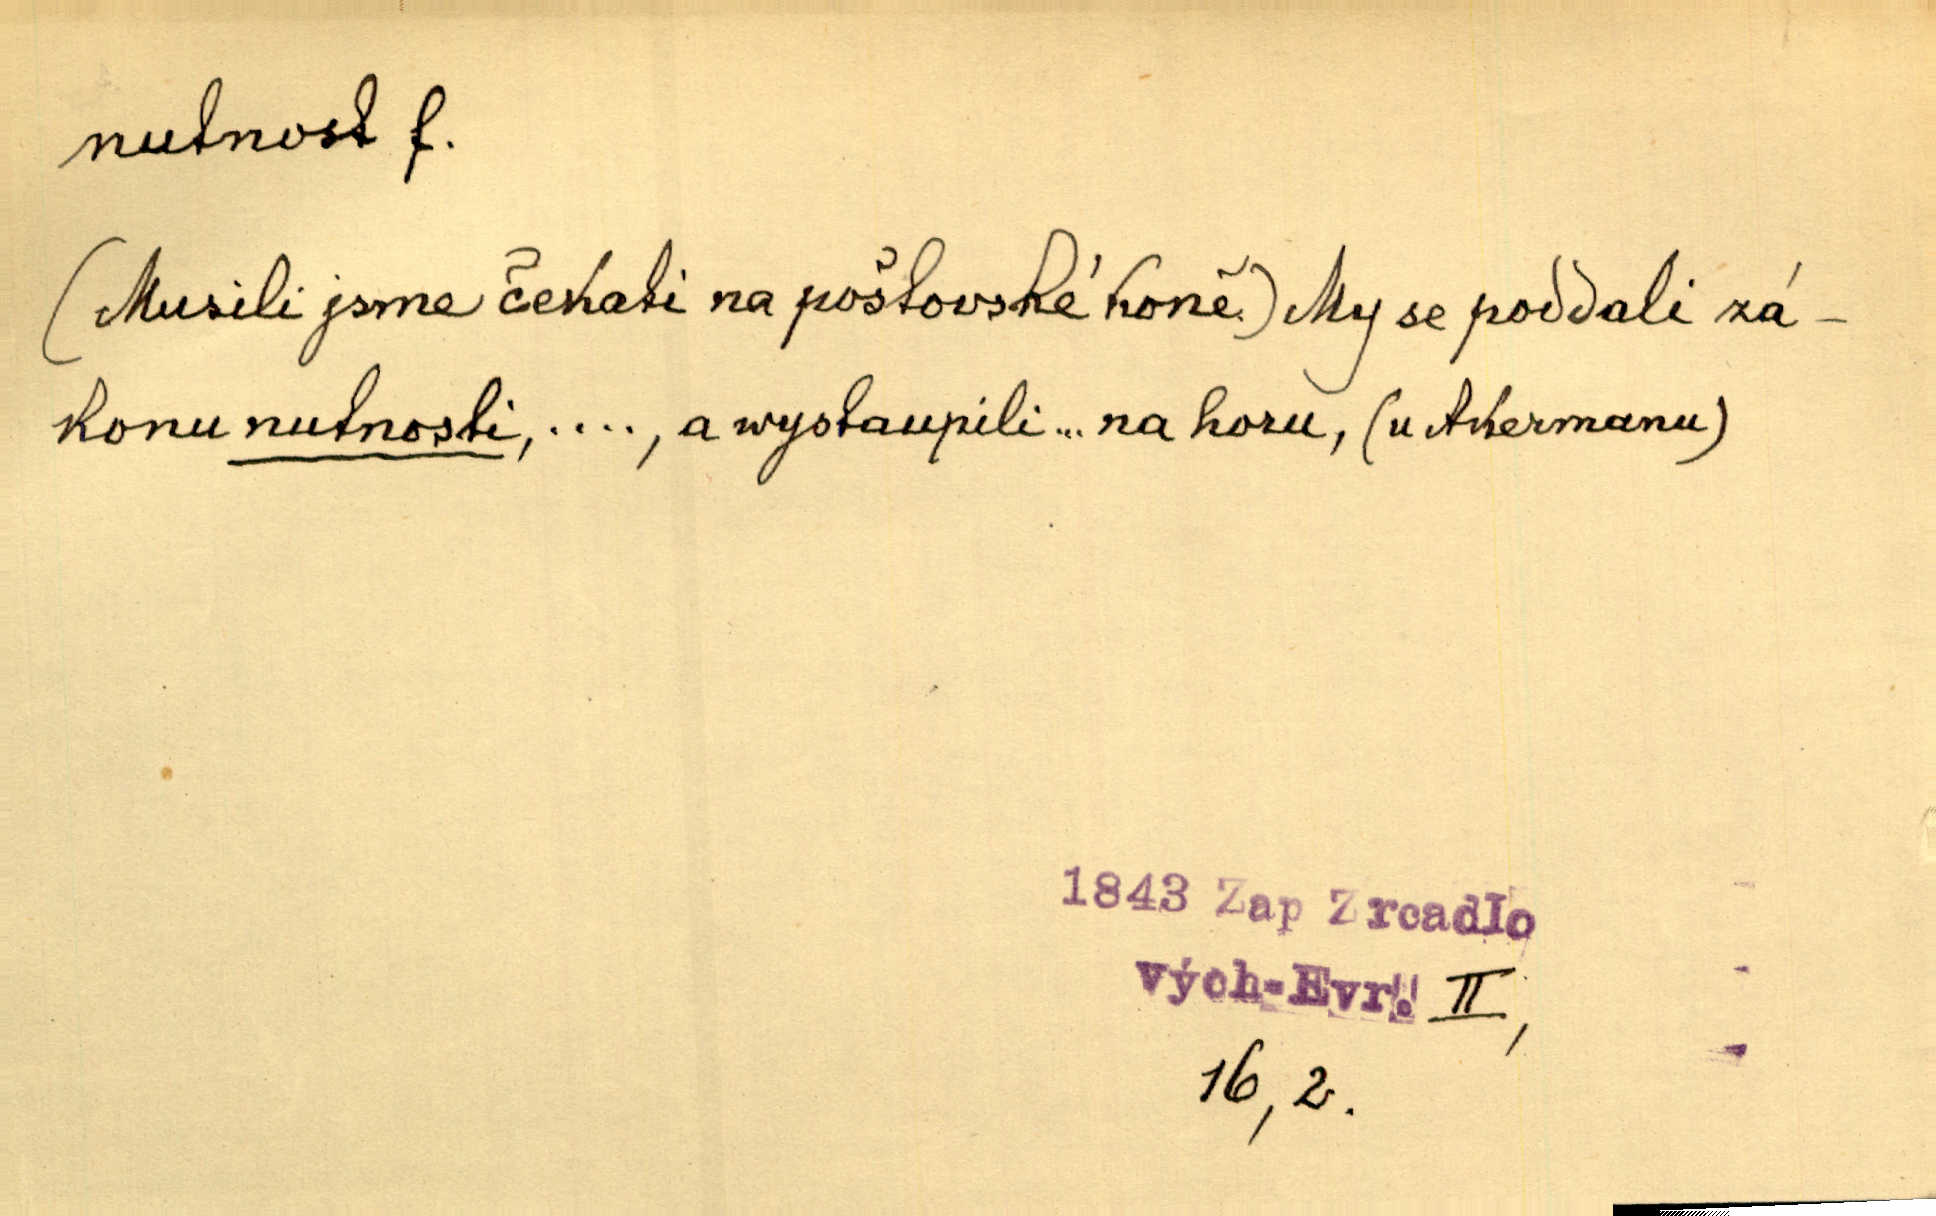 nutnost f.
(Musili jsme čekati na poštovské koně.) My se poddali zá-
konu nutnosti, ...., a wystaupili... na horu, (u Akermanu)
1843 Zap Zrcadlo
Vých-Evr. II,
16, 2.